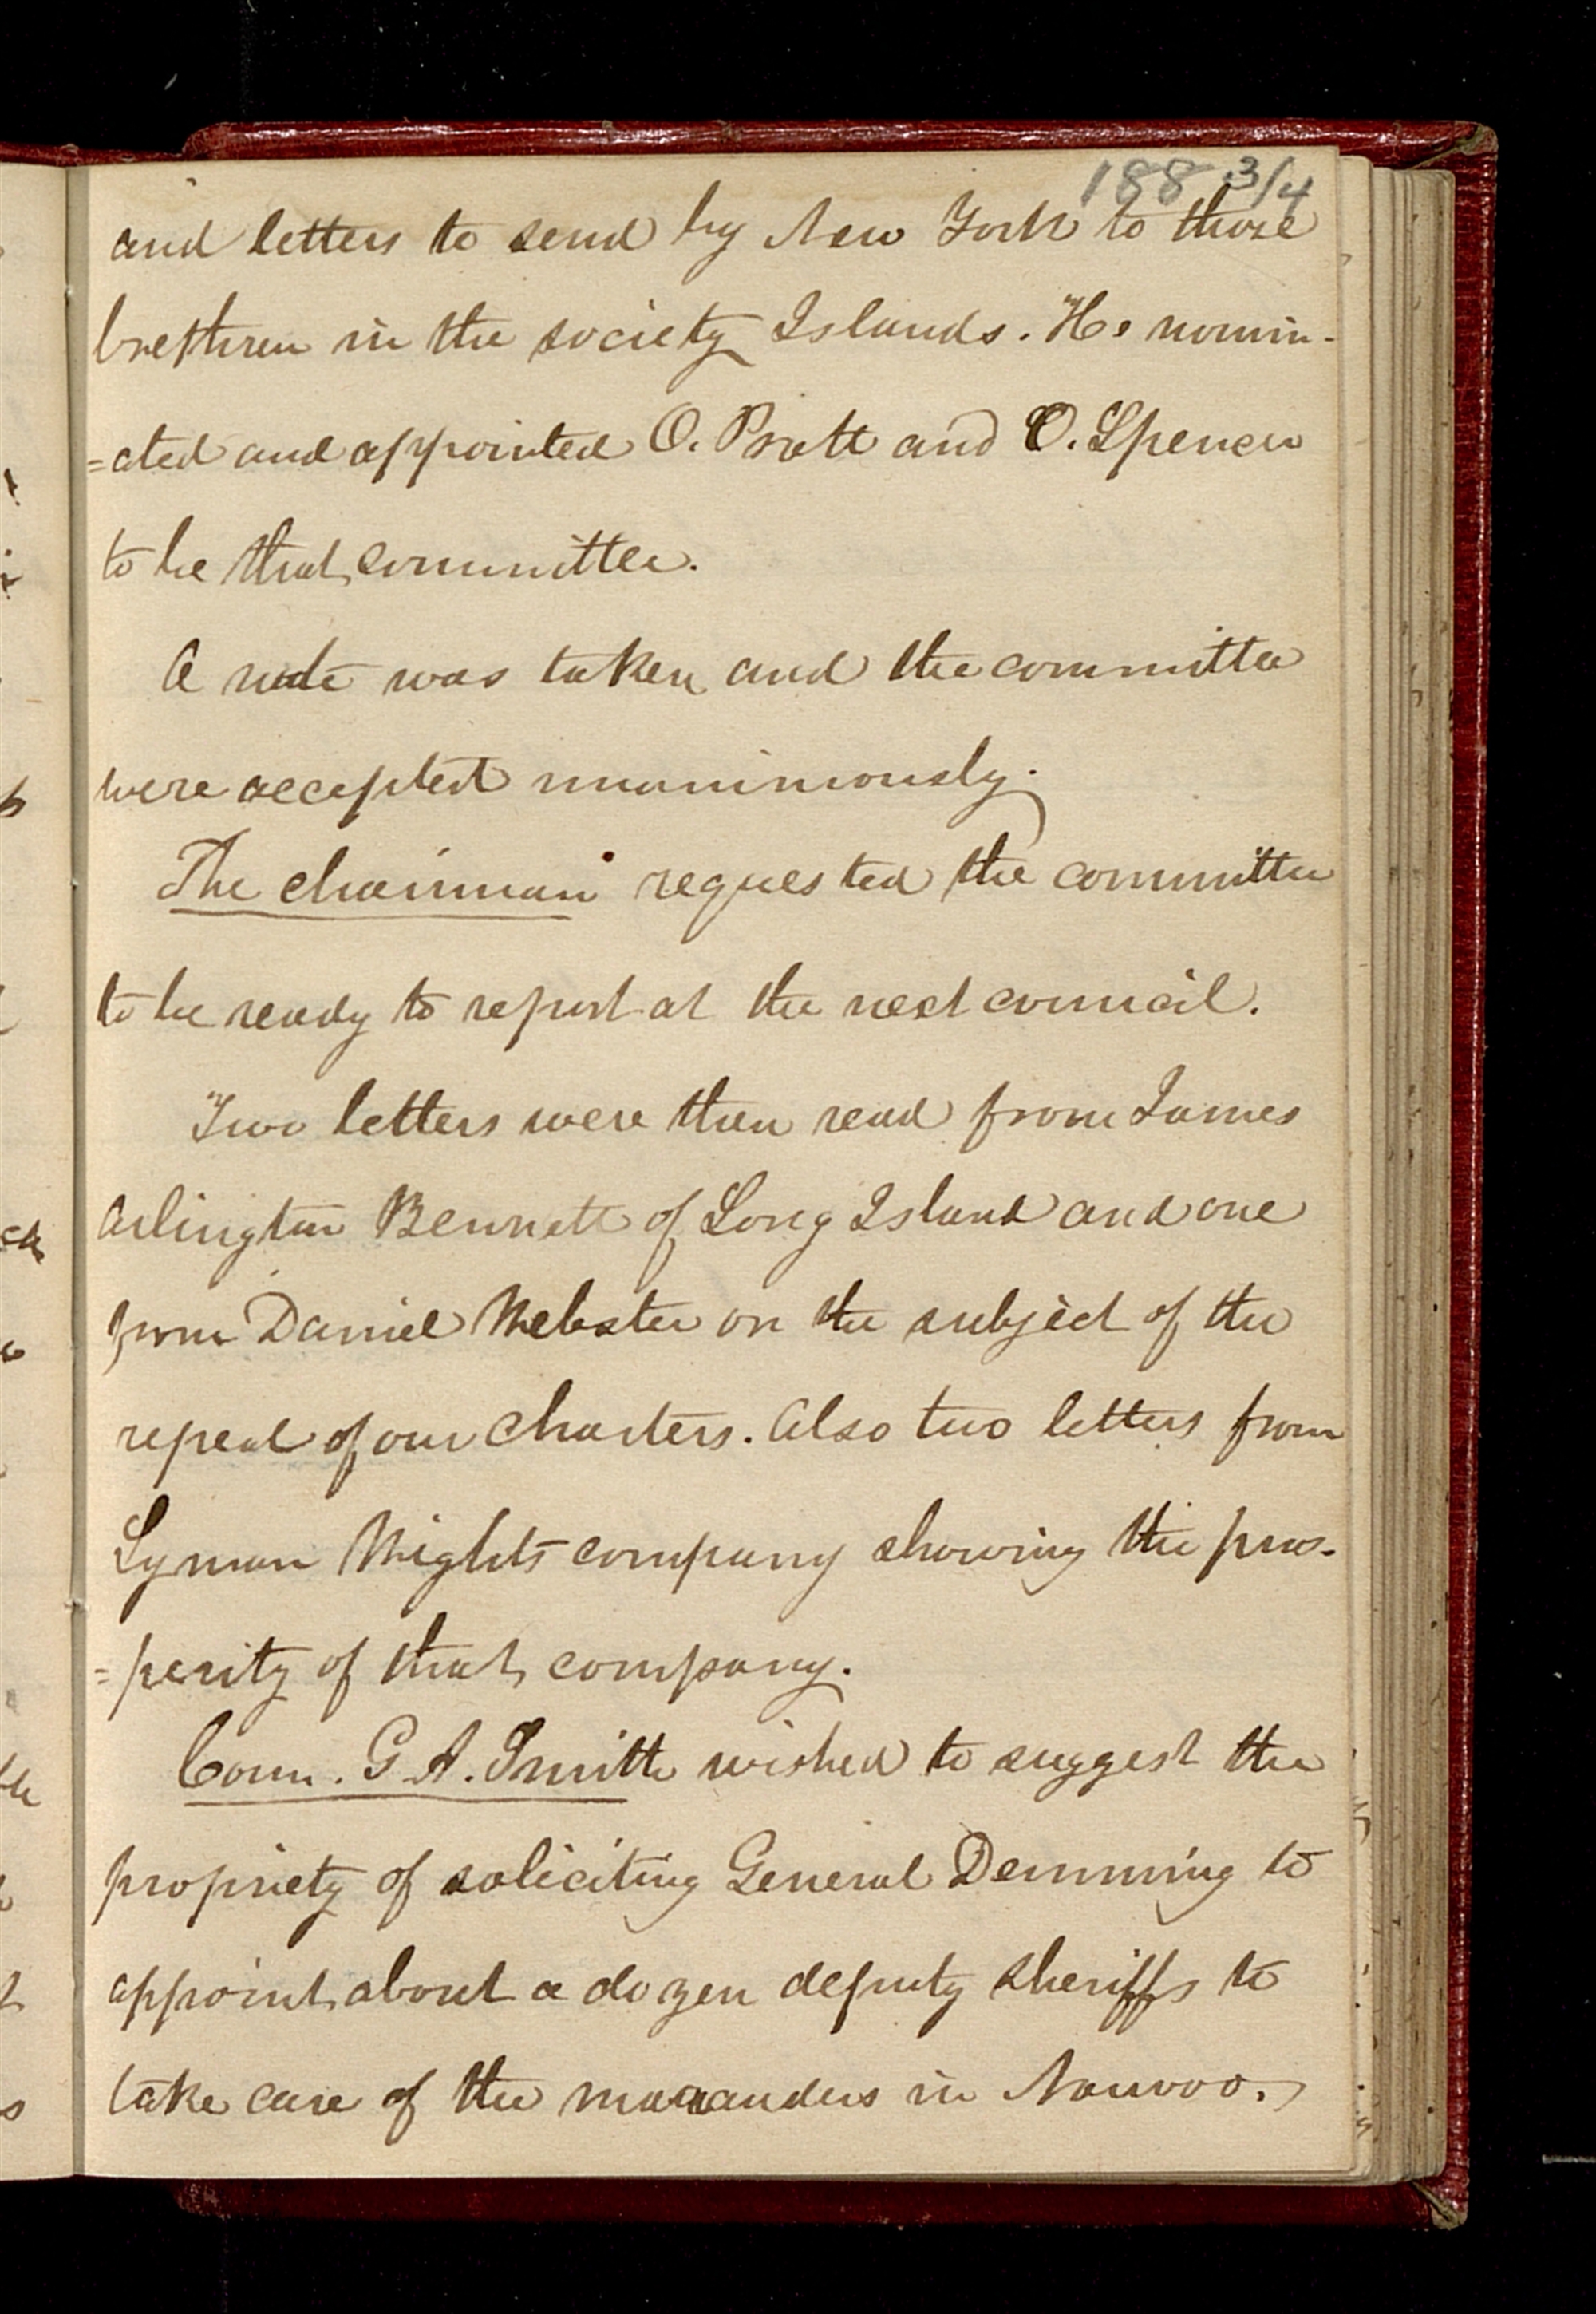 188 3/4
and letters to send by New York to those
brethren in the society Islands. He nomin-
=ated and appointed O. Pratt and O. Spencer
to be that committee.
A vote was taken and the committee
were accepted unanimously.
The chairman requested the committee
to be ready to report at the next council.
Two letters were then read from James
Arlington Bennett of Long Island and one
from Daniel Webster on the subject of the
repeal of our Charters. Also two letters from
Lyman Wights company showing the pros-
=perity of that company.
Coun. G. A. Smith wished to suggest the
propriety of soliciting General Demming to
appoint about a dozen deputy sheriffs to
take care of the marauders in Nauvoo.